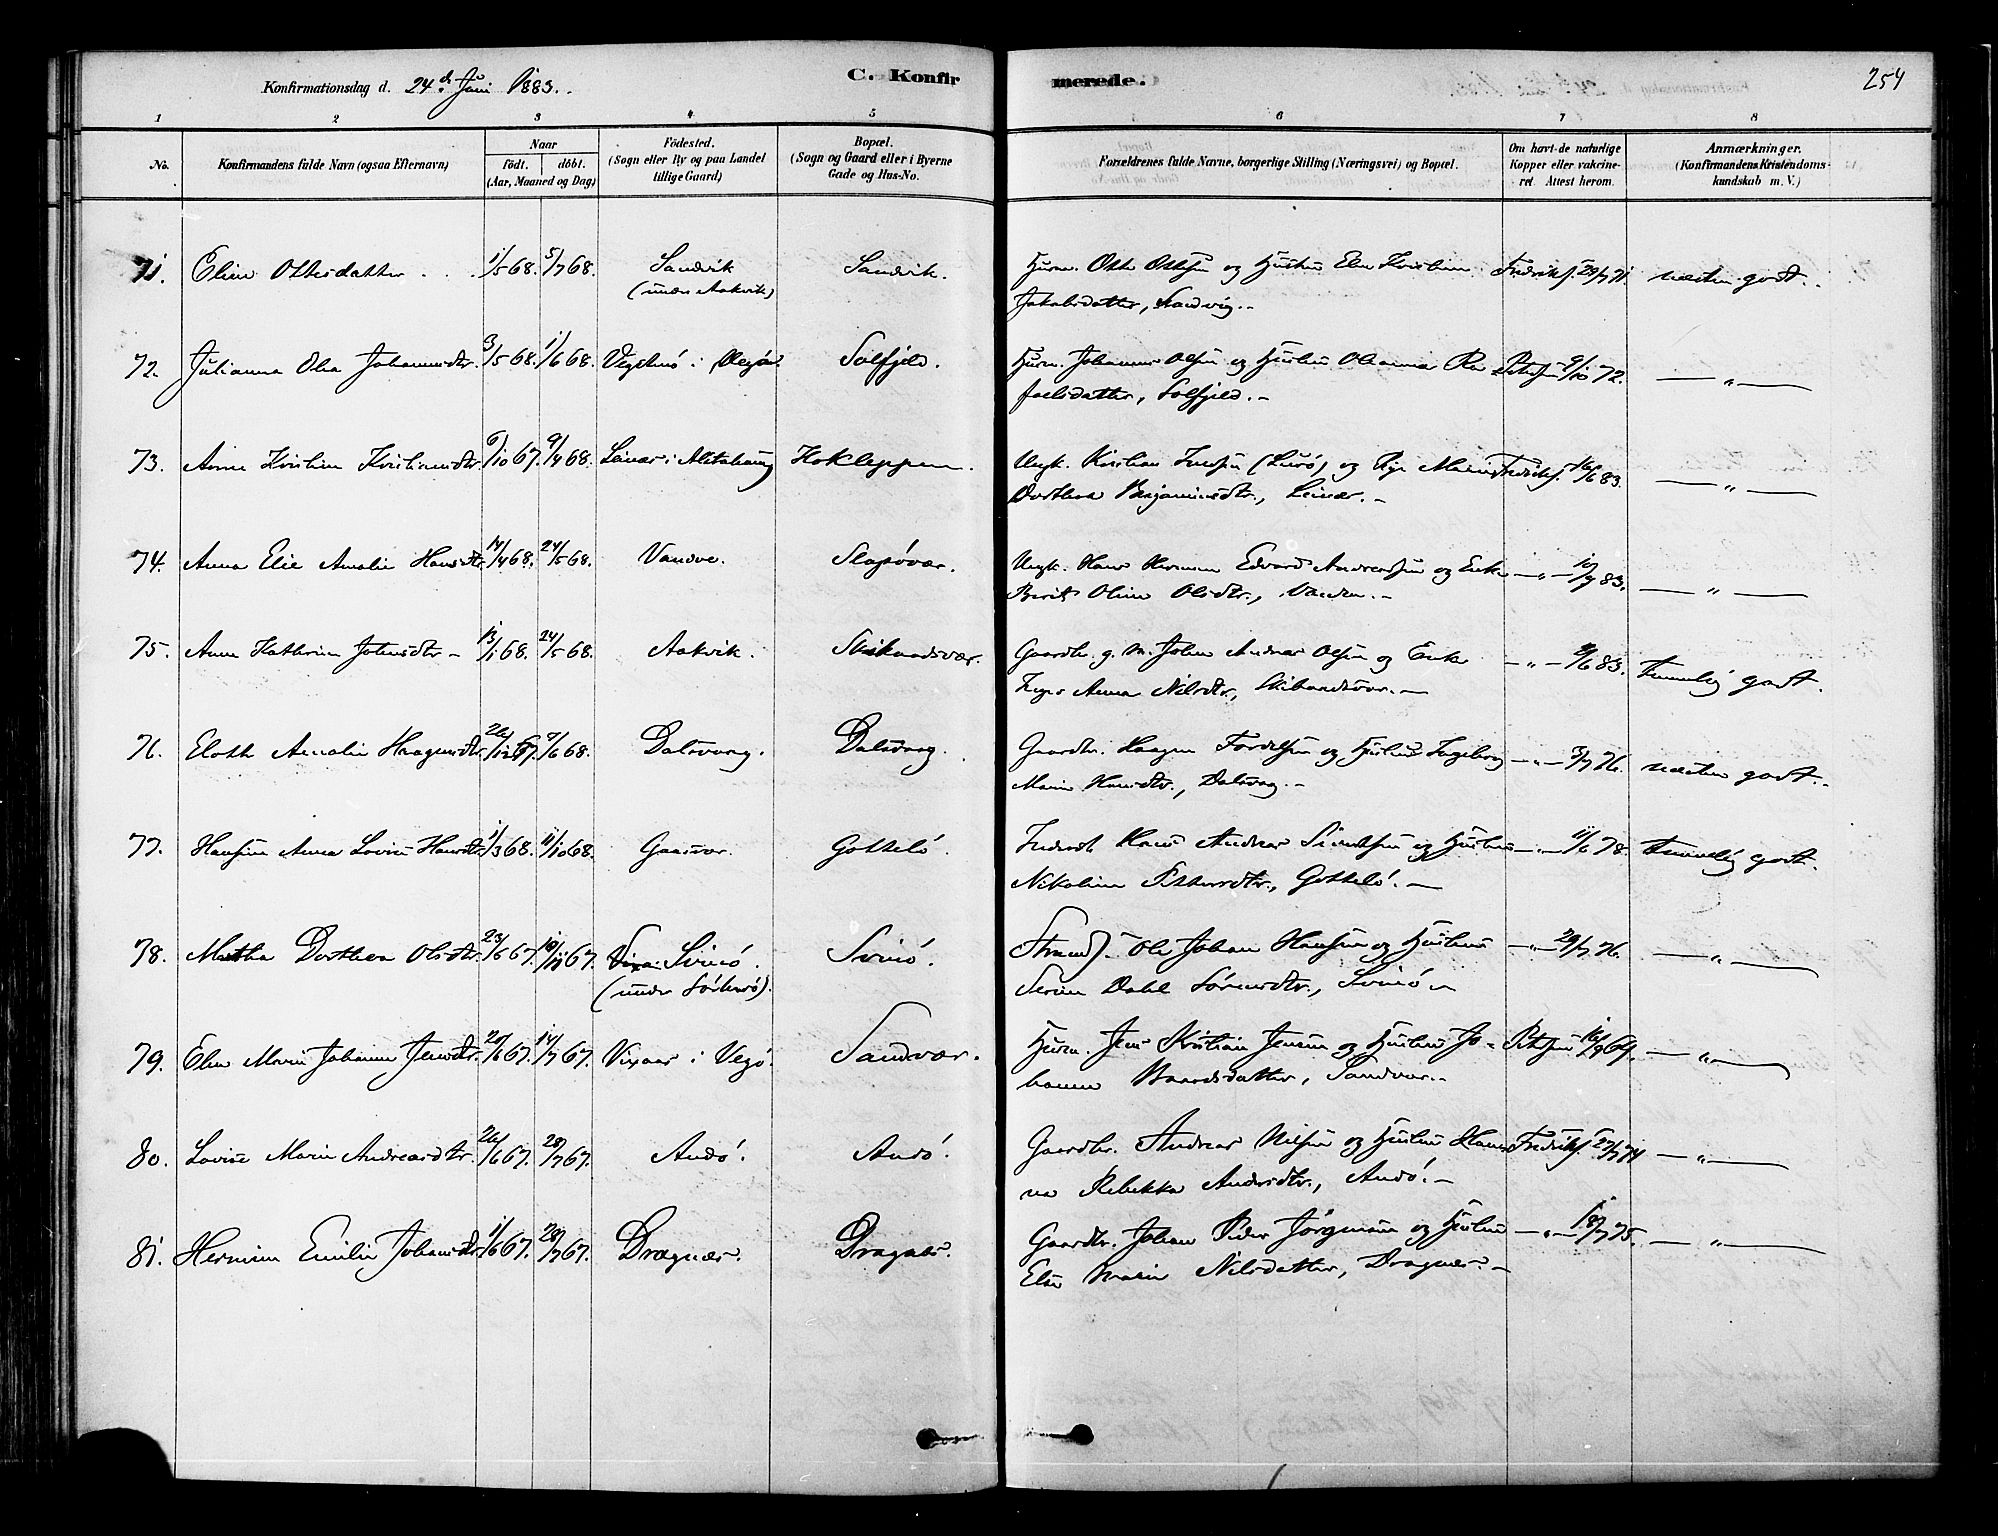 Konfirmationsdag d. 24de Juni 1883.
C. Konfirmerede.
254
1 2 3 4 5 6 7 8
No.
Konfirmandens fulde Navn (ogsaa Efternavn)
Naar
født. døbt.
(Aar, Maaned og Dag)
Födested.
(Sogn eller By og paa Landet
tillige Gaard)
Bopæl.
(Sogn og Gaard eller i Byerne
Gade og Hus-No.
Forældrenes fulde Navne, borgerlige Stilling (Næringsvei) og Bopæl.
Om havt de naturlige
Kopper eller vakcine-
ret. Attest herom.
Anmærkninger.
(Konfirmandens Kristendoms-
kundskab m. V.)
71. Eline Ottesdatter 1/5 68. 5/7 68. Sandvik Sandvik. Husm. Otte Ottesen og Hustru Elen Kristine Fredriks. 29/7 71. næsten godt.
(under Aakvik) Jakobsdatter, Sandvig.
72. Julianna Olea Johannesdtr. 3/5 68. 1/6 68. Solfjeld. Husm. Johannes Olsen og Hustru Olianna Ra- Petersen 9/10 72. — " —
faelsdatter, Solfjeld.
73. Anne Kristine Kristiansdtr. 6/10 67. 9/4 68. Leinæs i Alstahaug Hoklappen. Ungk. Kristian (Lurø) og Pige Maren Fredriks. 16/6 83. — " —
Dorthea Benjaminsdtr., Leinæs.
74. Anna Elie Amalie Hansdtr. 14/4 68. 24/5 68. Vandve. Slapøvær. Ungk. Hans Herman Edvard Andreassen og Enke — " — 10/4 83. — " —
Berit Oline Olsdtr., Vandve.
75. Anne Kathrine Johnsdtr 13/1 68. 24/5 68. Aakvik. Skibaadsvær. Gaardbr. g. m. John Andreas Olsen og Enke — " — 9/6 83. Temmelig godt.
Anna Nilsdtr., Skibaadsvær.
76. Amalie Haagensdtr. 26/12 67. 7/6 68. Dalsvaag. Dalsvaag. Gaardbr. Haagen Tordelsen og Hustru Ingeborg — " — 3/7 76. næsten godt.
Marie Hansdtr., Dalsvaag.
77. Hansine Anna Lovise Hansdtr. 1/3 68. 11/10 68. Gaasvær. Gottelø. Inderst Hans Andreas Simonsen og Hustru — " — 11/6 78. Temmelig godt.
Nikoline Pettersdtr., Gottelø.
78. Martha Dorthea Olsdtr. 23/6 67. 10/11 67. Svinø. Svinø. Strands. Ole Johan Hansen og Hustru — " — 29/7 76. — " —
(under ) Serine Dahl Sørensdtr., Svinø
79. Elen Marie Johanna Jensdtr. 20/6 67. 14/7 67. Vixaas i Vegø. Sandvær. Husm. Jens Kristian Jensen og Hustru Jo- Petersen 16/9 69. — " —
hanna Baardsdatter, Sandvær.
80. Lovise Marie Andreasdtr. 26/6 67. 28/7 67. Andø. Andø. Gaardbr. Andreas Nilsen og Hustru Han- Fredriks. 27/7 74 — " —
na Rebekka Andersdtr., Andø.
81. Hermine Emilie Johansdtr. 1/6 67. 28/7 67. Dragnæs. Dragnæs. Gaardbr. Johan Peder Jørgensen og Hustru — " — 18/7 75. — " —
Else Marie Nilsdatter, Dragnæs.